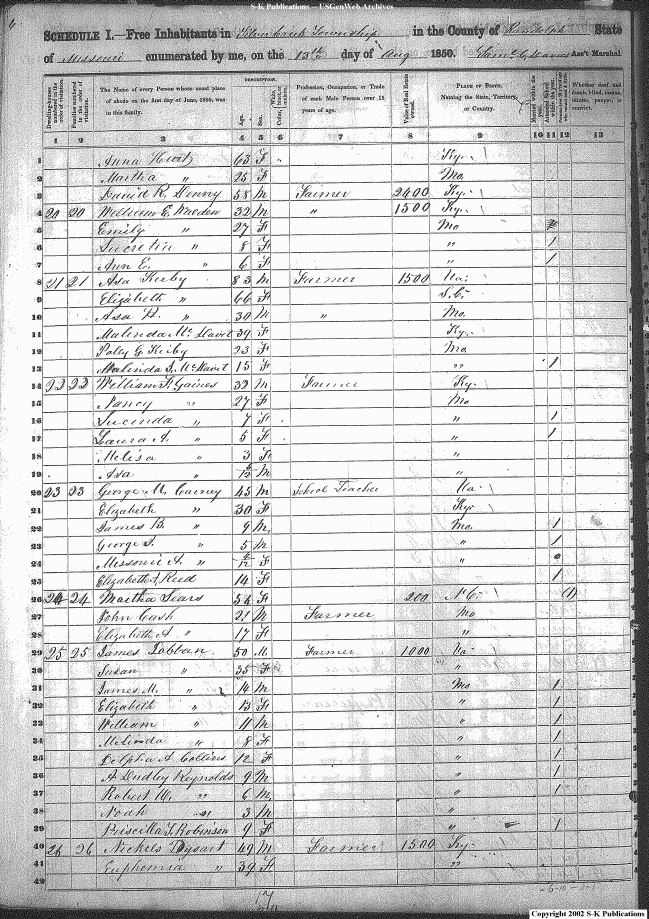 S-K Publications -- USGenWeb Archives
6
SCHEDULE I.—Free Inhabitants in Township in the County of Randolph State
of Missouri enumerated by me, on the 13th day of Aug 1850. Ass't Marshal.
Dwelling-houses numbered in the order of visitation. Families numbered in the order of visitation. The Name of every Person whose usual place of abode on the first day of June, 1850, was in this family. DESCRIPTION. Age. Sex. Color, White, black, or mulatto. Profession, Occupation, or Trade of each Male Person over 15 years of age. Value of Real Estate owned. PLACE OF BIRTH. Naming the State, Territory, or Country. Married within the year. Attended School within the year. Whether deaf and dumb, blind, insane, idiotic, pauper, or convict.
1 2 3 4 5 6 7 8 9 10 11 12 13
1 Anna 63 F Ky.
2 Martha " 25 F Mo.
3 David R. Denny 58 M Farmer 2400 Ky.
4 20 20 William E. Walden 32 M " 1500 Ky.
5 Emily " 27 F Mo
6 Lucretia " 8 F " 1
7 Ann E. " 6 F " 1
8 21 21 Asa Kirby 83 M Farmer 1500 Va.
9 Elizabeth " 66 F S.C.
10 Asa " 30 M " Mo.
11 Malinda 39 F Ky.
12 Poley G. Kirby 23 F Mo.
13 Malinda 15 F " 1
14 22 22 William Gaines 32 M Farmer Ky.
15 Nancy " 27 F Mo
16 Lucinda " 7 F " 1
17 Laura A. " 5 F " 1
18 Melisa " 3 F "
19 Asa " /12 M "
20 23 23 George M. Carney 45 M School Teacher Va.
21 Elizabeth " 30 F Ky.
22 James B. " 9 M Mo. 1
23 George " 5 M " 1
24 Missouri A. " /12 F "
25 Elizabeth A. Reed 14 F " 1
26 24 24 Martha Sears 54 F 200 N.C. (1)
27 John Cash 21 M Farmer Mo
28 Elizabeth A. " 17 F "
29 25 25 James Tobban 50 M. Farmer 1000 Va.
30 Susan " 35 F "
31 James M. " 14 M Mo 1
32 Elizabeth " 13 F " 1
33 William " 11 M " 1
34 Melinda " 8 F " 1
35 Delpha A. Collins 12 F " 1
36 A Dudley Reynolds 9 M " 1
37 Robert W. " 6 M " 1
38 Noah " 3 M "
39 Priscilla J. Robinson 9 F " 1
40 26 26 Nichels Dysart 49 M Farmer 1500 Ky.
41 Euphemia " 39 F "
42
17
Copyright 2002 S-K Publications